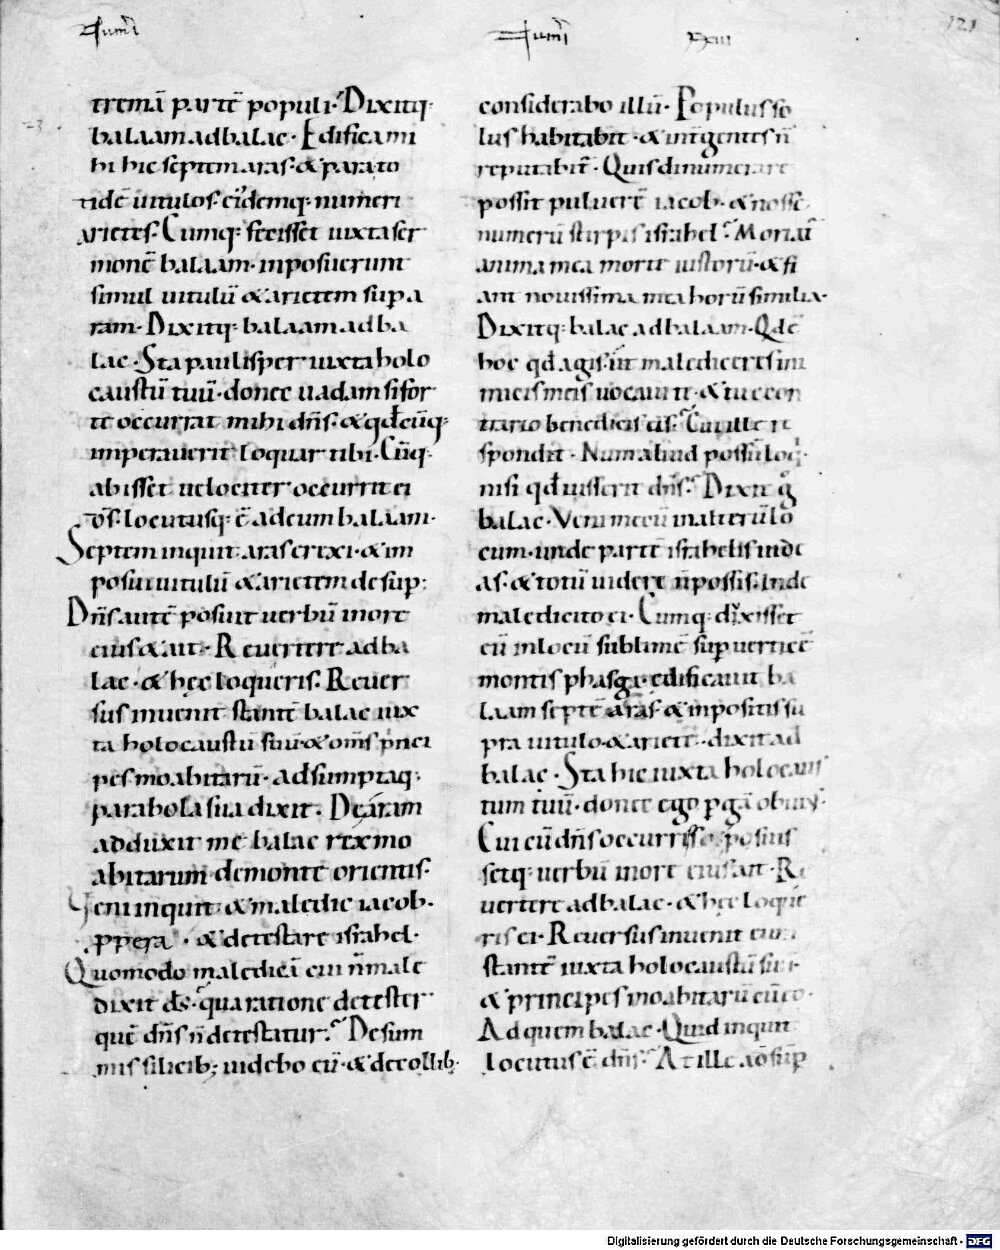 Numeri
Numeri xxiii
121
tremā partē populi· Dixitq;
balaam ad balac· Edifica mi
hi hic septem aras· & para to
tidē uitulos· eiusdemq; numeri
arietes· Cumq; fecisset iuxta ser
monē balaam· inposuerunt
simul uitulū & arietem sup a
ram· Dixitq; balaam ad ba
lac· Sta paulisper iuxta holo
caustū tuū· donec uadam si for
te occurrat mihi dn̄s· & qđcūq;
imperauerit loquar tibi· Cūq;
abisset uelociter occurrit ei
d̄s· locutusq; ē ad eum balaam·
Septem inquit aras erexi· & im
posui uitulū & arietem desup;
Dn̄s autē posuit uerbū in ore
eius & ait· Reuertere ad ba
lac· & hęc loqueris· Reuer
sus inuenit stantē balac iux
ta holocaustū suū & om̄s prici
pes moabitarū· adsumptaq;
parabola sua dixit· De aram
adduxit me balac rex mo
abitarum· de monte orientis·
Veni inquit· & maledic iacob·
ppera· & detestare israhel·
Quomodo maledicā cui n̄ male
dixit d̄s· qua ratione detester
quē dn̄s n̄ detestatur· De sum
mis silicib; uidebo eū· & de collib;
considerabo illū· Populus so
lus habitabit· & int̄ gentes n̄
reputabit̄· Quis dinumerare
possit puluerē iacob· & nosse
numerū stirpis israhel· Moriat̄
anima mea morte iustorū· & fi
ant nouissima mea horū similia·
Dixitq; balac ad balaam· Qđ ē
hoc qđ agis· ut malediceres ini
micis meis uocaui te· & tu e con
trario benedicis eis· Cui ille re
spondit· Num aliud possū loq̄
nisi qđ iusserit dn̄s· Dixit g̊
balac· Veni mecū in alterū lo
cum· unde partē israhelis uide
as· & totū uidere n̄ possis· Inde
maledicito ei· Cumq; duxisset
eū in locū sublimē sup uerticē
montis phasga· edificauit ba
laam septē aras· & inpositis su
pra uitulo & ariete· dixit ad
balac· Sta hic iuxta holocaus
tum tuū· donec ego pgā obuius·
Cui cū dn̄s occurrisset· posuis
setq; uerbū in ore eius ait· Re
uertere ad balac· & hęc loque
ris ei· Reuersus inuenit eum
stantē iuxta holocaustū suū·
& principes moabitarū cū eo·
Ad quem balac· Quid inquit
locutus ē dn̄s· At ille adsūp
Digitalisierung gefördert durch die Deutsche Forschungsgemeinschaft - DFG